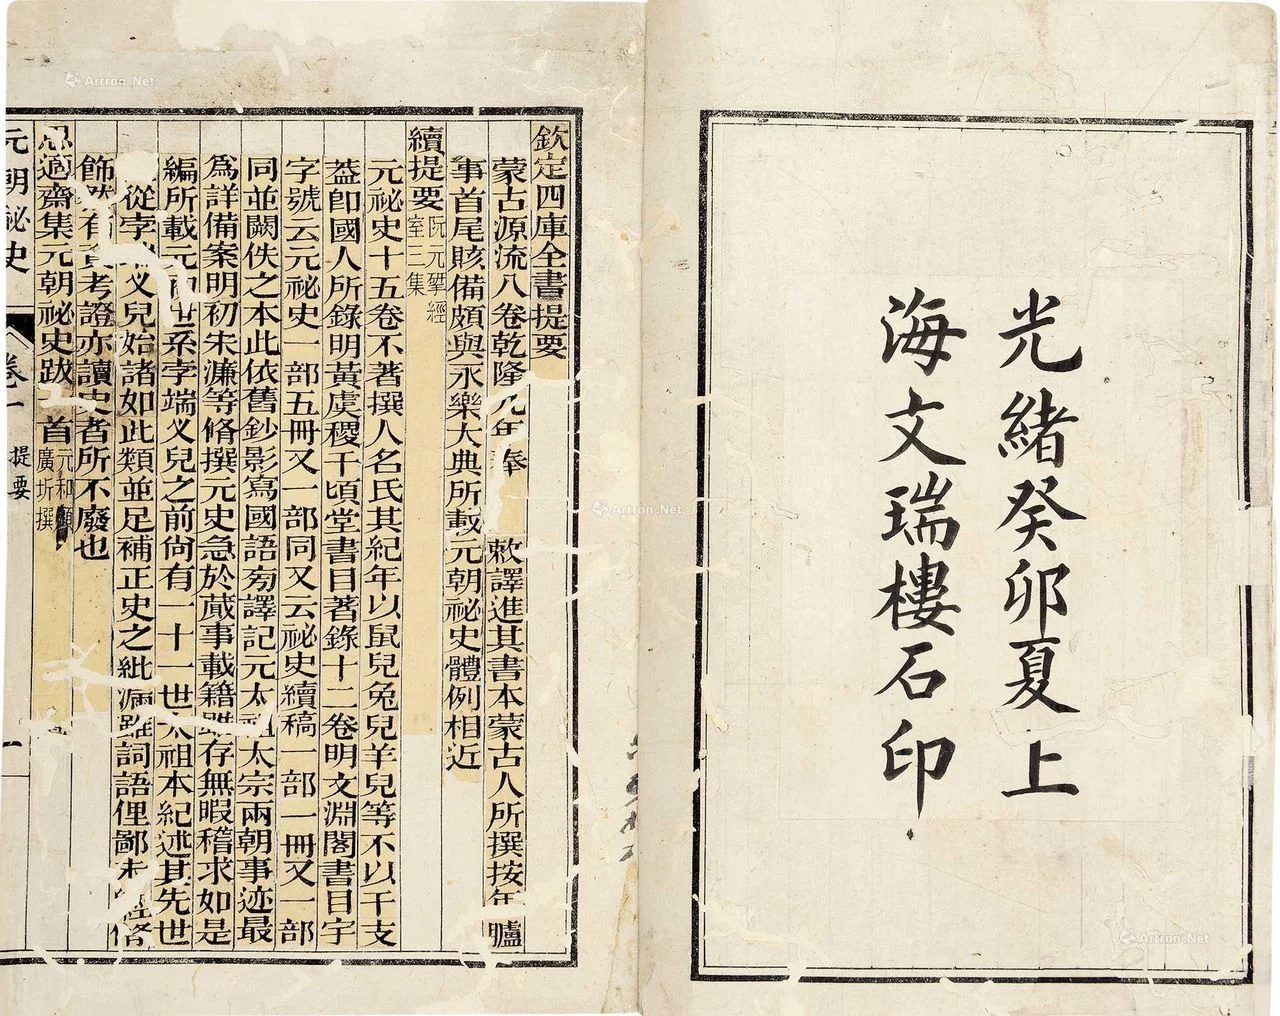 光緒癸卯夏上
海文瑞樓石印
欽定四庫全書提要
蒙古源流八卷乾隆九年奉 敕譯進其書本蒙古人所撰按年臚
事首尾賅備頗與永樂大典所載元朝祕史體例相近
續提要 阮元揅經
室二集
元祕史十五卷不著撰人名氏其紀年以鼠兒兔兒羊兒等不以干支
葢卽國人所錄明黃虞稷千頃堂書目著錄十二卷明文淵閣書目宇
字號云元祕史一部五冊又一部同又云祕史續稿一部一冊又一部
同並闕佚之本此依舊鈔影寫國語旁譯記元太祖太宗兩朝事迹最
爲詳備案明初宋濂等脩撰元史急於蕆事載籍雖存無暇稽求如是
編所載元初世系孛端义兒之前尙有一十一世太祖本紀述其先世
從孛端义兒始諸如此類並足補正史之紕漏雖詞語俚鄙未經脩
飾然有資考證亦讀史者所不廢也
思適齋集元朝祕史跋一首 元和顧
廣圻撰
元朝祕史 卷一 提要 一
Artron.Net
Artron.Net
Artron.Net